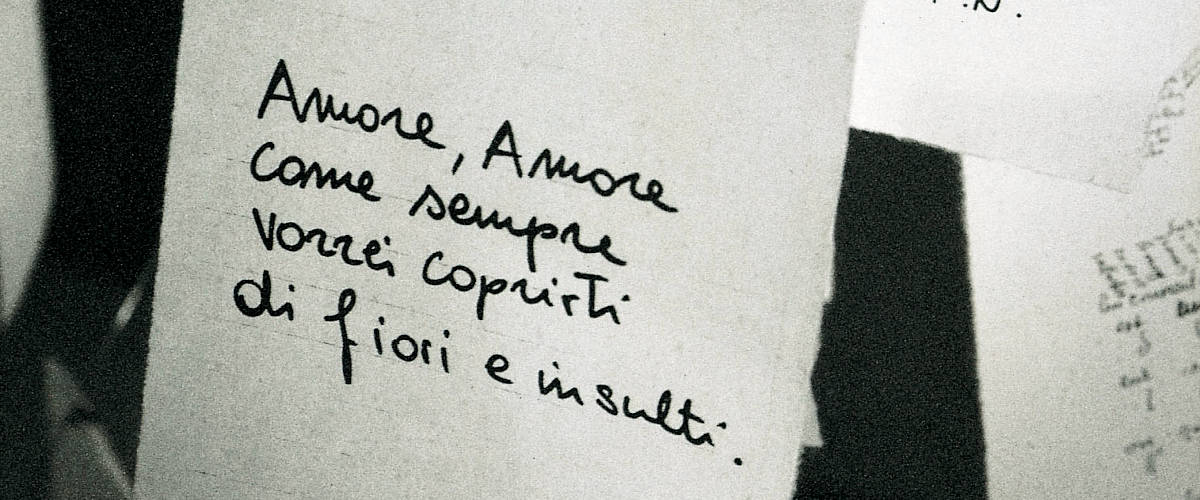 Amore, Amore
come sempre
vorrei coprirti
di fiori e insulti.